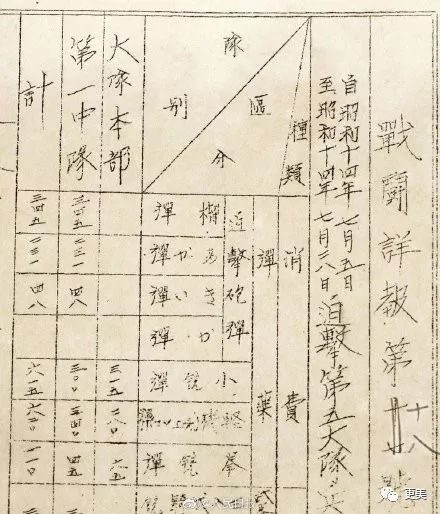 戰鬪詳報第
十八
自昭和十四年七月五日
至昭和十四年七月二八日
迫擊第五大隊
種類
區分
隊別
消費
彈藥
迫擊砲彈
榴彈
あか彈
きい彈
小銃彈
拳銃彈
大隊本部
三一五
二八〇
六五
第一中隊
三四五
二三一
四八
三〇〇
三四〇
四五
計
三四五
二三一
四八
六一五
六二〇
一一〇
更美